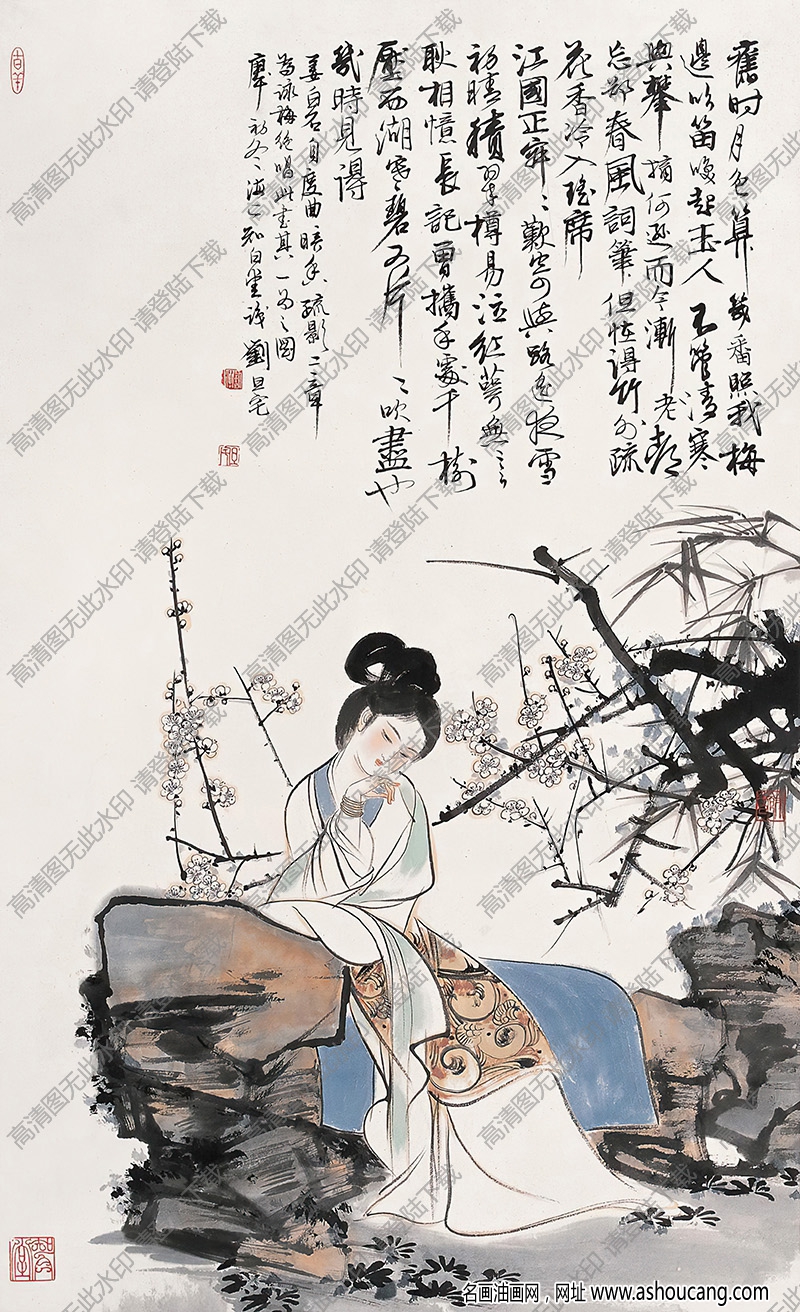 舊时月色算幾番照我梅
邊吹笛喚起玉人不管清寒
與攀摘何遜而今漸老都
忘却春風詞筆但怪得竹外疏
花香冷入瑤席
江國正寂〻歎寄與路遥夜雪
初晴積翠樽易泣紅萼無言
耿相憶長記曾攜手處千樹
壓西湖寒碧又片〻吹盡也
幾時見得
姜白石自度曲暗香疏影二章
為詠梅絕唱此書其一為之圖
庚申初冬海上知白堂識 劉旦宅
吉羊
高清图无此水印 请登陆下载
名画油画网，网址 www.ashoucang.com